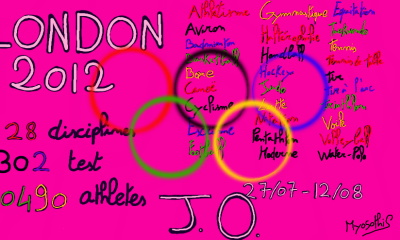 LONDON
2012
28 disciplines
302 test
0490 athletes
Athlétisme
Aviron
Badminton
Basketball
Boxe
Canoe
Cyclisme
Escrime
Football
Gymnastique
Haltérophilie
Handball
Hockey
Judo
Lutte
Natation
Pentathlon
Moderne
Equitation
Tennis
Tennis de table
Tir
Tir à l'arc
Triathlon
Voile
Volley-ball
Water-Polo
27/07-12/08
J.O.
Myosothis